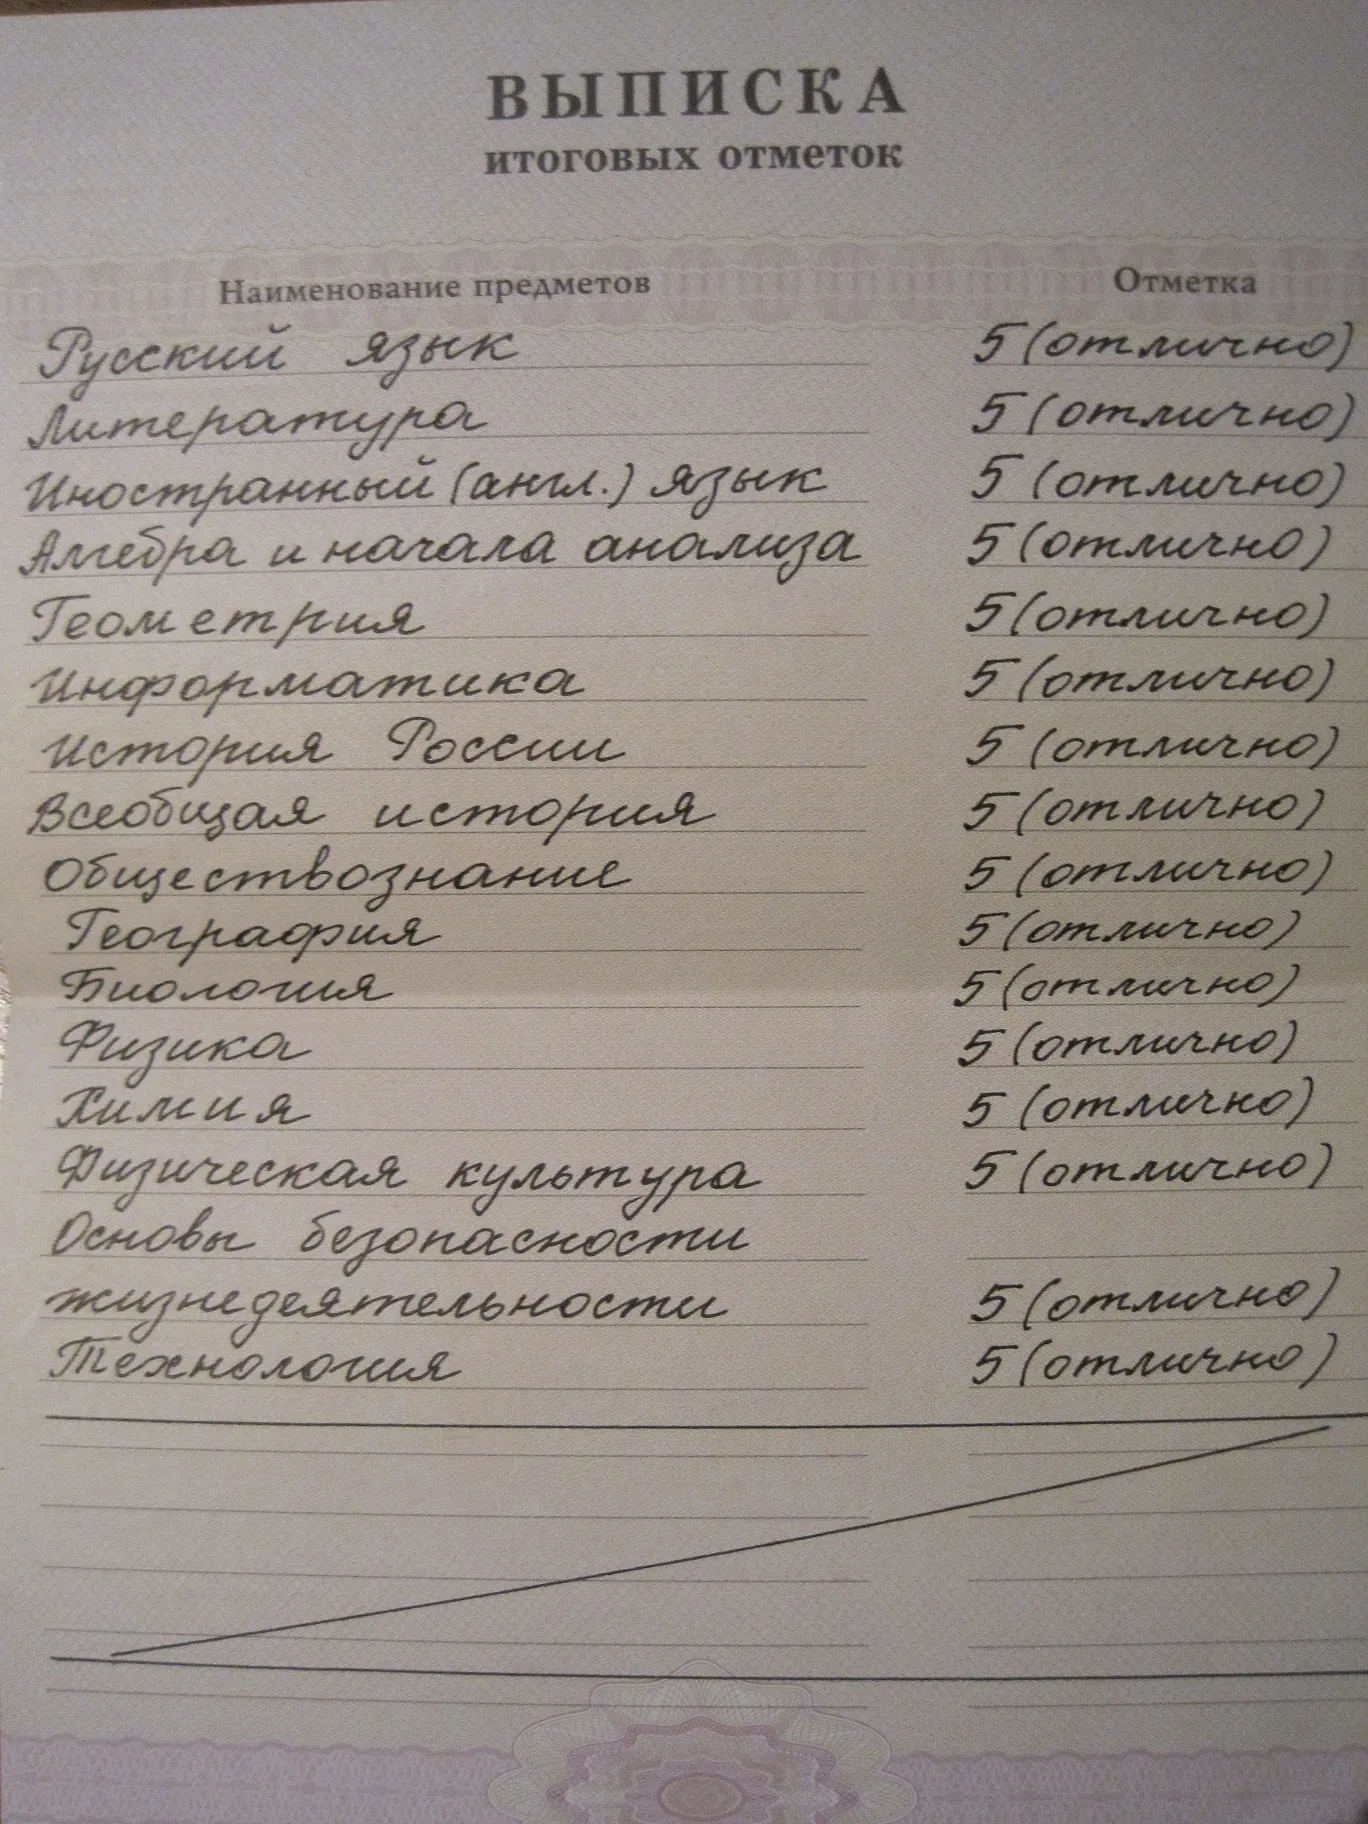 ВЫПИСКА
итоговых отметок
Наименование предметов Отметка
Русский язык 5 (отлично)
Литература 5 (отлично)
Иностранный (англ.) язык 5 (отлично)
Алгебра и начала анализа 5 (отлично)
Геометрия 5 (отлично)
Информатика 5 (отлично)
История России 5 (отлично)
Всеобщая история 5 (отлично)
Обществознание 5 (отлично)
География 5 (отлично)
Биология 5 (отлично)
Физика 5 (отлично)
Химия 5 (отлично)
Физическая культура 5 (отлично)
Основы безопасности
жизнедеятельности 5 (отлично)
Технология 5 (отлично)